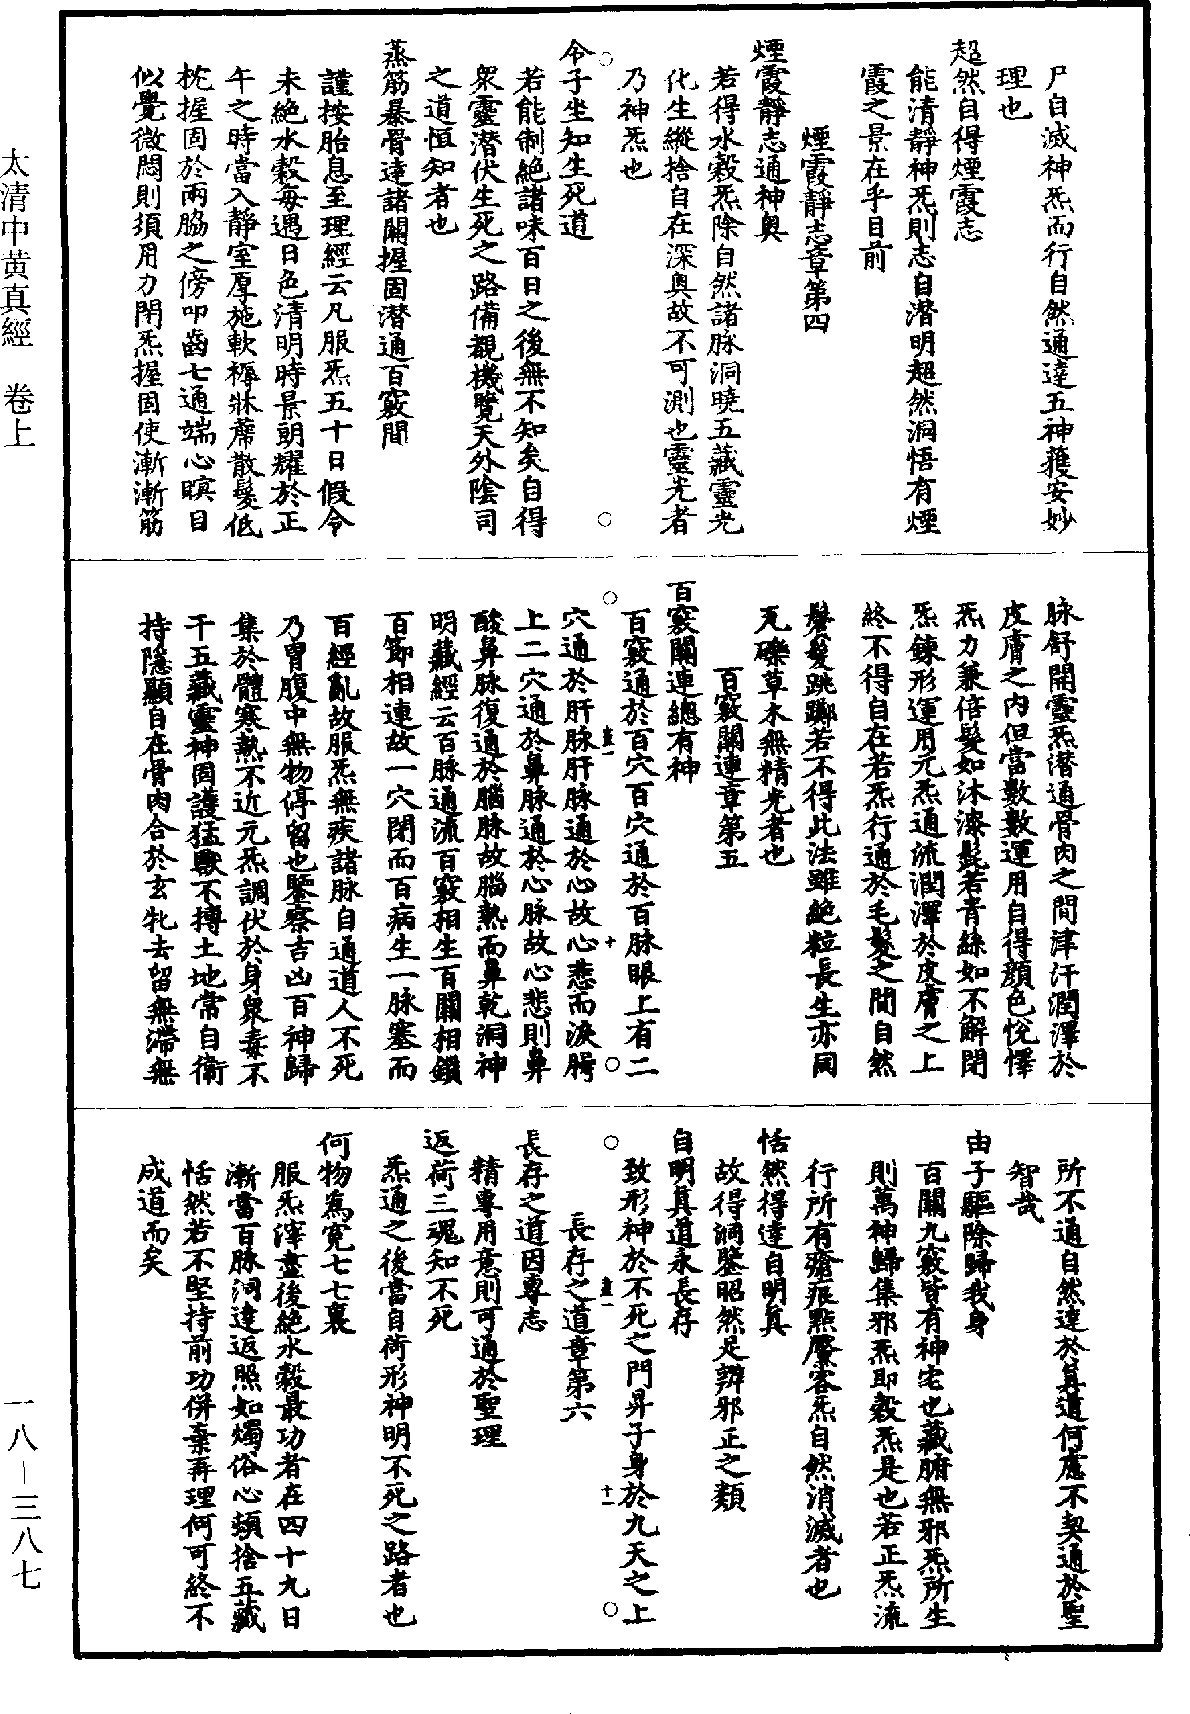 尸自滅神炁而行自然通達五神獲安妙
理也
超然自得煙霞志
能清靜神炁則志自潛明超然洞悟有煙
霞之景在乎目前
煙霞靜志章第四
煙霞靜志通神奧
若得水穀炁除自然諸脉洞曉五藏靈光
化生縱捨自在深奧故不可測也靈光者
乃神炁也
令子坐知生死道
若能制絶諸味百日之後無不知矣自得
衆靈潛伏生死之路備覩機覽天外陰司
之道恒知者也
蒸筋暴骨達諸關握固潛通百竅間
謹按胎息至理經云凡服炁五十日假令
未絶水穀每遇日色清明時景朗耀於正
午之時當入靜室厚施軟褥牀蓆散髮低
枕握固於兩脇之傍叩齒七通端心瞑目
似覺微悶則須用力閉炁握固使漸漸筋
脉舒開靈炁潛通骨肉之間津汗潤澤於
皮膚之内但當數數運用自得顔色悅懌
炁力兼倍髮如沐漆髭若青絲如不解閉
炁鍊形運用元炁通流潤澤於皮膚之上
終不得自在若炁行通於毛髮之間自然
鬢髮跳躑若不得此法雖絶粒長生亦同
瓦礫草木無精光者也
百竅關連章第五
百竅關連總有神
百竅通於百穴百穴通於百脉眼上有二
穴通於肝脉肝脉通於心故心悲而淚腭
上二穴通於鼻脉通於心脉故心悲則鼻
酸鼻脉復通於腦脉故腦熱而鼻乾洞神
明藏經云百脉通流百竅相生百關相鎖
百節相連故一穴閉而百病生一脉塞而
百經亂故服炁無疾諸脉自通道人不死
乃胃腹中無物停留也鑒察吉凶百神歸
集於體寒熱不近元炁調伏於身衆毒不
干五藏靈神固護猛獸不搏土地常自衞
持隱顯自在骨肉合於玄牝去留無滯無
所不通自然達於真道何慮不契通於聖
智哉
由子驅除歸我身
百關九竅皆有神宅也藏腑無邪炁所生
則萬神歸集邪炁即穀炁是也若正炁流
行所有瘡痕點黶客炁自然消滅者也
恬然得達自明真
故得洞鑒昭然足辨邪正之類
自明真道永長存
致形神於不死之門昇子身於九天之上
長存之道章第六
長存之道因專志
精專用意則可通於聖理
返荷三魂知不死
炁通之後當自荷形神明不死之路者也
何物爲寃七七裏
服炁滓盡後絶水穀最功者在四十九日
漸當百脉洞達返照如燭俗心頓捨五藏
恬然若不堅持前功併棄再理何可終不
成道而矣
太清中黄真經　卷上
一八－三八七